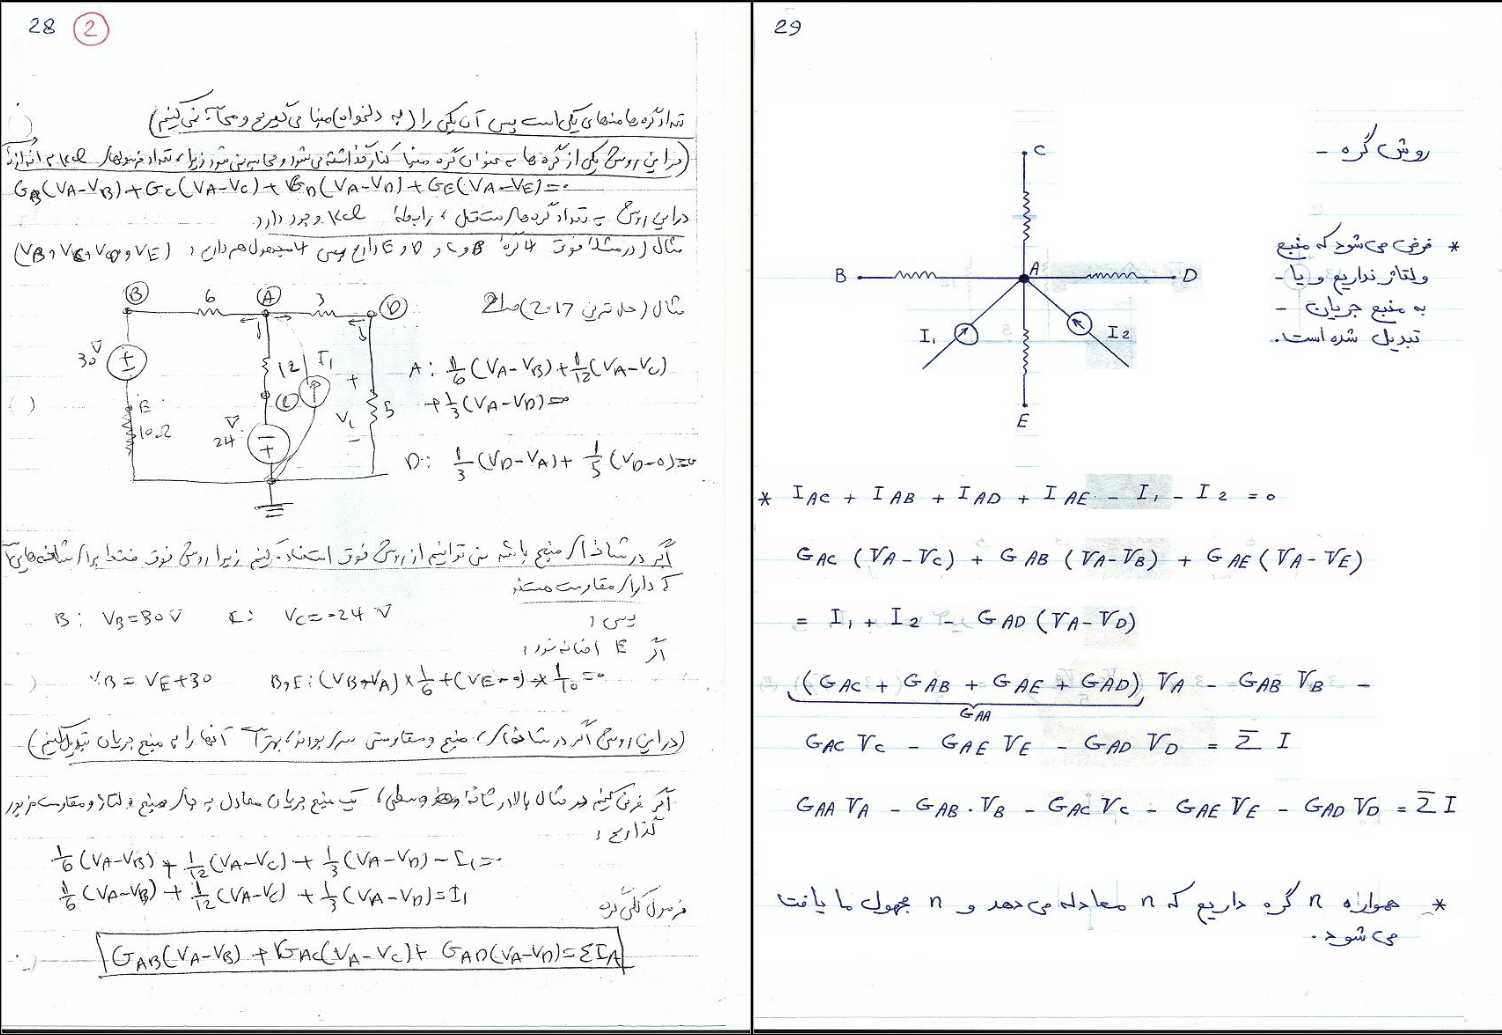 28 2
تعداد گره ها منهای یکی است پس آن یکی را (به دلخواه) مبنا می گیریم و محاسبه نمی کنیم)
(در این روش یکی از گره ها به عنوان گره مبنا کنار گذاشته می شود و محاسبه نمی شود زیرا، تعداد مجهولها KCL به اندازه
GB(VA-VB)+GC(VA-VC)+GD(VA-VD)+GE(VA-VE)=0
در این روش به تعداد گره های مستقل، رابطه KCL وجود دارد.
مثال (در مثلا فوق 4 گره B و C و D و E داریم پس 4 مجهول هم داریم: (VB, VC, VD, VE)
مثال (حل تمرین 2.17)
B 6 A 3 D
30 V
12
I1
C
+
V1
-
5
E
10Ω
24 V
A: 1/6 (VA-VB)+1/12(VA-VC)
+1/3(VA-VD)=0
D: 1/3 (VD-VA)+ 1/5 (VD-0)=0
اگر در شاخه ای منبع باشد نمی توانیم از روش فوق استفاده کنیم زیرا روش فوق فقط برای شاخه هایی
که دارای مقاومت هستند
پس:
B: VB=30 V C: VC=-24 V
اگر E اضافه شود:
VB = VE+30 B,E: (VB-VA)×1/6+(VE-0)×1/10=0
(در این روش اگر در شاخه ای، منبع و مقاومتی سری بودند، بهتر است آنها را به منبع جریان تبدیل کنیم)
اگر فرض کنیم در مثال بالا در شاخه وسطی، یک منبع جریان معادل به جای منبع ولتاژ و مقاومت مزبور
گذاریم:
1/6 (VA-VB) + 1/12 (VA-VC) + 1/3 (VA-VD) - I1=0
1/6 (VA-VB) + 1/12 (VA-VC) + 1/3 (VA-VD)=I1
فرمول کلی گره
GAB(VA-VB) + GAC(VA-VC)+ GAD(VA-VD)=ΣIA
29
روش گره -
C
B A D
I1 I2
E
* فرض می شود که منبع
ولتاژ نداریم و یا -
به منبع جریان -
تبدیل شده است.
* IAC + IAB + IAD + IAE - I1 - I2 = 0
GAC (VA-VC) + GAB (VA-VB) + GAE (VA-VE)
= I1 + I2 - GAD (VA-VD)
(GAC + GAB + GAE + GAD) VA - GAB VB -
GAA
GAC VC - GAE VE - GAD VD = Σ I
GAA VA - GAB . VB - GAC VC - GAE VE - GAD VD = Σ I
* همواره n گره داریم که n معادله می دهد و n مجهول ما یافت
می شود.